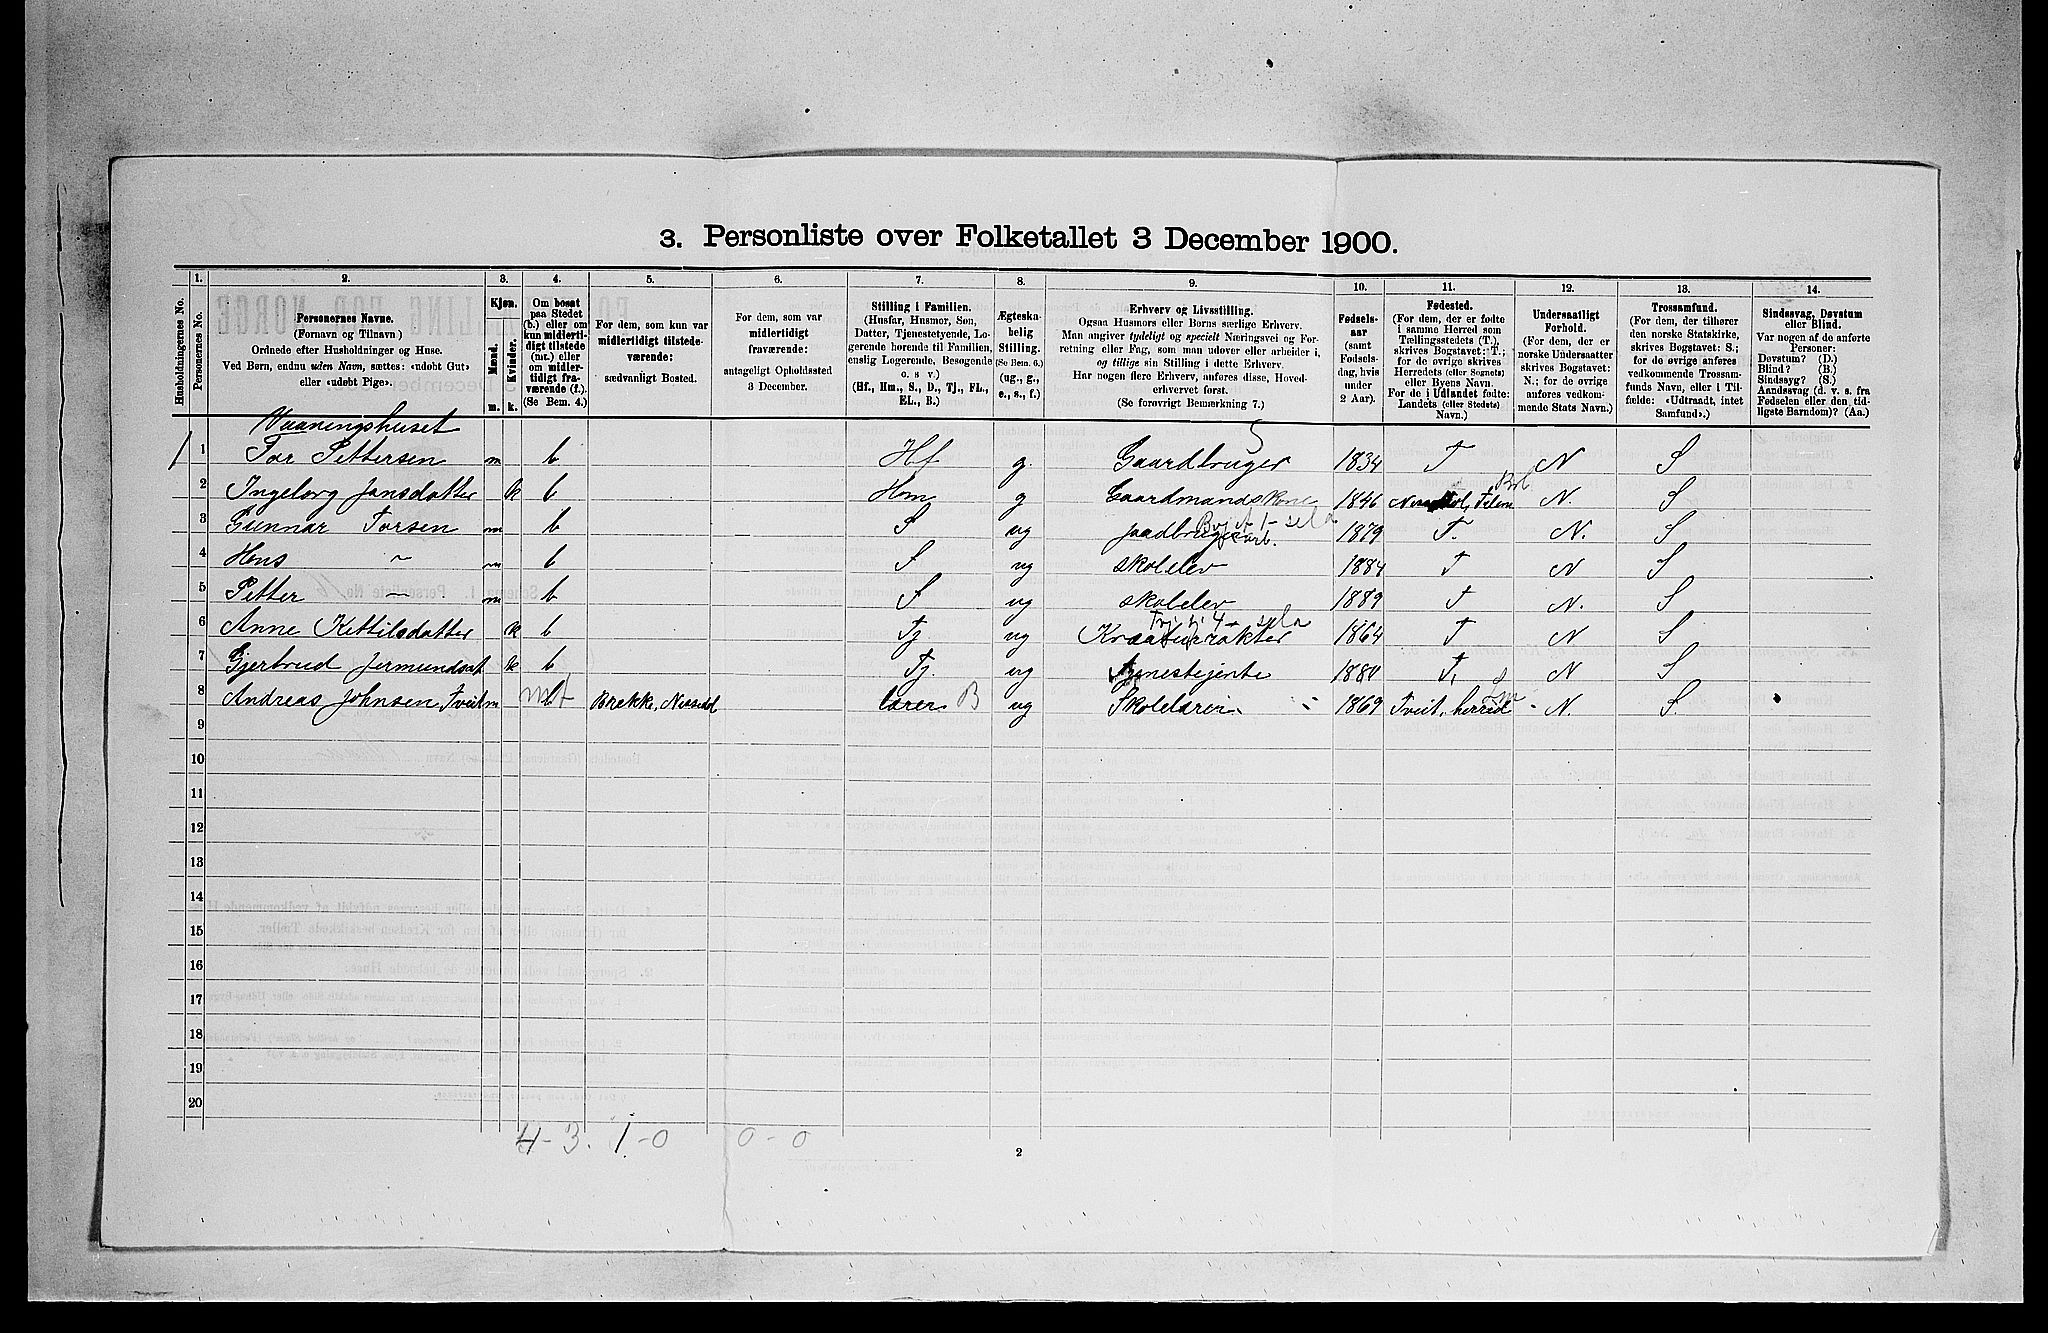 3. Personliste over Folketallet 3 December 1900.
1. 2. 3. 4. 5. 6. 7. 8. 9. 10. 11. 12. 13. 14.
Husholdningernes No.
Personernes No.
Personernes Navne.
(Fornavn og Tilnavn)
Ordnede efter Husholdninger og Huse.
Ved Børn, endnu uden Navn, sættes: «udøbt Gut»
eller «udøbt Pige».
Kjøn.
Mænd. Kvinder.
m. k.
Om bosat
paa Stedet
(b.) eller om
kun midlerti-
digt tilstede
(mt.) eller
om midler-
tidigt fra-
værende (f.).
(Se Bem. 4.)
For dem, som kun var
midlertidigt tilstede-
værende:
sædvanligt Bosted.
For dem, som var
midlertidigt
fraværende:
antageligt Opholdssted
3 December.
Stilling i Familien.
(Husfar, Husmor, Søn,
Datter, Tjenestetyende, Lo-
gerende hørende til Familien,
enslig Logerende, Besøgende
o. s v.)
(Hf., Hm., S., D., Tj., FL.,
EL., B.)
Ægteska-
belig
Stilling.
(Se Bem. 6.)
(ug., g.,
e., s., f.)
Erhverv og Livsstilling.
Ogsaa Husmors eller Børns særlige Erhverv.
Man angiver tydeligt og specielt Næringsvei og For-
retning eller Fag, som man udøver eller arbeider i,
og tillige sin Stilling i dette Erhverv.
Har nogen flere Erhverv, anføres disse, Hoved-
erhvervet først.
(Se forøvrigt Bemærkning 7.)
Fødsels-
aar
(samt
Fødsels-
dag, hvis
under
2 Aar).
Fødested.
(For dem, der er fødte
i samme Herred som
Tællingsstedets (T.),
skrives Bogstavet: T.;
for de øvrige skrives
Herredets (eller Sognets)
eller Byens Navn.
For de i Udlandet fødte:
Landets (eller Stedets)
Navn.)
Undersaatligt
Forhold.
(For dem, der er
norske Undersaatter
skrives Bogstavet:
N.; for de øvrige
anføres vedkom-
mende Stats Navn.)
Trossamfund.
(For dem, der tilhører
den norske Statskirke,
skrives Bogstavet: S.;
for de øvrige anføres
vedkommende Trossam-
funds Navn, eller i Til-
fælde: «Udtraadt, intet
Samfund».)
Sindssvag, Døvstum
eller Blind.
Var nogen af de anførte
Personer:
Døvstum? (D.)
Blind? (B.)
Sindssyg? (S.)
Aandssvag (d. v. s. fra
Fødselen eller den tid-
ligste Barndom)? (Aa.)
Vaaningshuset
1 1 Tor Pettersen m b Hf g. Gaardbruger 5 1834 T N S
2 Ingeborg Jansdatter k b Hm g Gaardmandskone 1846 N. S
3 Gunnar Torsen m b S ug 1879 T. N. S
4 Hans ~ m b S ug skolelev 1884 T N S
5 Petter ~ m b S ug skolelev 1889 T N. S
6 Anne Kettilsdatter k b Tj ug Kreaturrøkter 1864 T N S
7 Gjertrud k b Tj. ug tjenestejente T. N S
8 Andreas Johnsen Tveit m mt Brekke, Nissedal lærer B ug Skolelærer 1869 Tveit, herred N. S.
9
10
11
12
13
14
15
16
17
18
19
20
4-3. 1-0 0-0
2